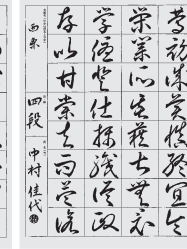 篤初誠美慎終宜令
榮業所基籍甚無竟
學優登仕攝職從政
存以甘棠去而益詠
四段 中村佳代